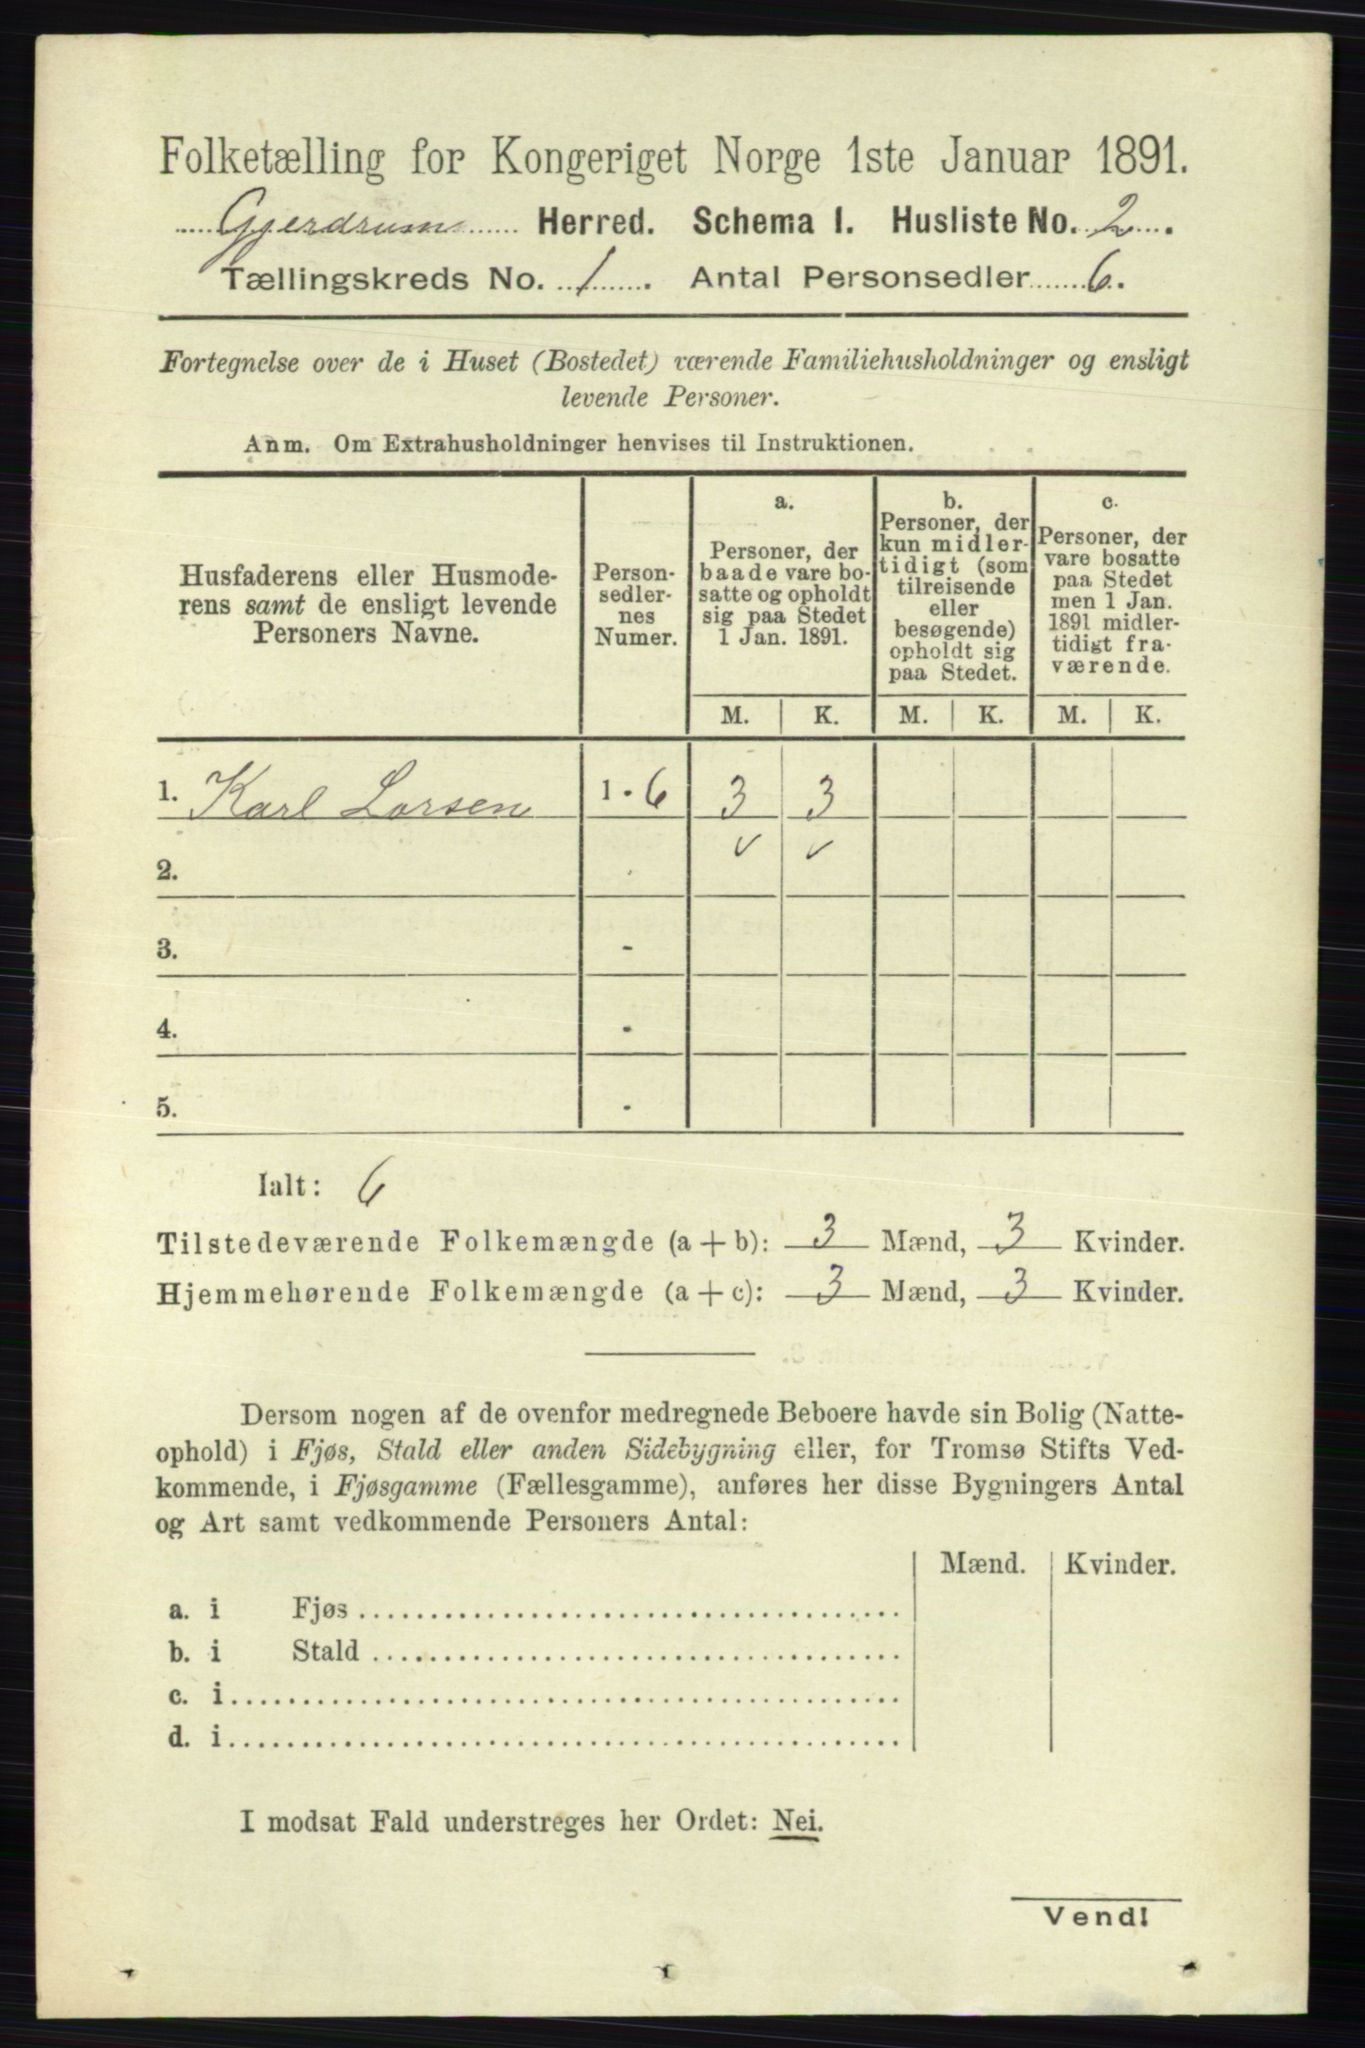 Folketælling for Kongeriget Norge 1ste Januar 1891.
Gjerdrum Herred. Schema I. Husliste No. 2.
Tællingskreds No. 1. Antal Personsedler 6.
Fortegnelse over de i Huset (Bostedet) værende Familiehusholdninger og ensligt
levende Personer.
Anm. Om Extrahusholdninger henvises til Instruktionen.
Husfaderens eller Husmode-
rens samt de ensligt levende
Personers Navne.
Person-
sedler-
nes
Numer.
a.
Personer, der
baade vare bo-
satte og opholdt
sig paa Stedet
1 Jan. 1891.
b.
Personer, der
kun midler-
tidigt (som
tilreisende
eller
besøgende)
opholdt sig
paa Stedet.
c.
Personer, der
vare bosatte
paa Stedet
men 1 Jan.
1891 midler-
tidigt fra-
værende.
M. K. M. K. M. K.
1. Karl Larsen 1 - 6 3 3
2. -
3. -
4. -
5. -
Ialt: 6
Tilstedeværende Folkemængde (a + b): 3 Mænd, 3 Kvinder.
Hjemmehørende Folkemængde (a + c): 3 Mænd, 3 Kvinder.
Dersom nogen af de ovenfor medregnede Beboere havde sin Bolig (Natte-
ophold) i Fjøs, Stald eller anden Sidebygning eller, for Tromsø Stifts Ved-
kommende, i Fjøsgamme (Fællesgamme), anføres her disse Bygningers Antal
og Art samt vedkommende Personers Antal:
Mænd. Kvinder.
a. i Fjøs
b. i Stald
c. i
d. i
I modsat Fald understreges her Ordet: Nei.
Vend!